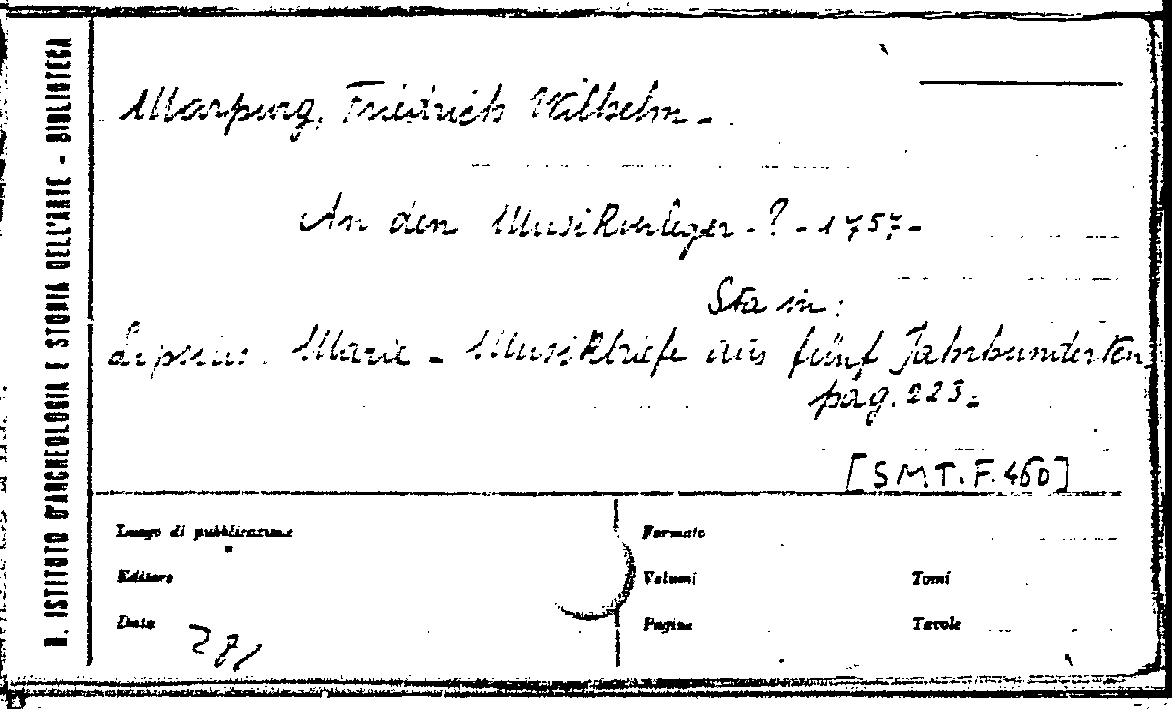 R. ISTITUTO D'ARCHEOLOGIA E STORIA DELL'ARTE - BIBLIOTECA
Marpurg, Friedrich Wilhelm -
An den Musikverleger - ? - 1757 -
Sta in:
Lipsius. Marie - Musikbriefe aus fünf Jahrhunderten
pag. 223 -
[S M T. F. 460]
Luogo di pubblicazione
Formato
Editore
Volumi
Tomi
Data
Pagine
Tavole